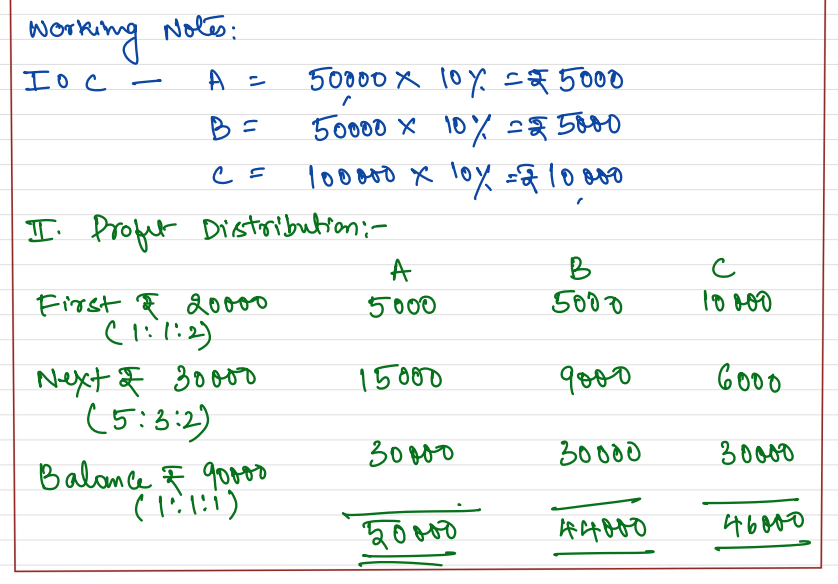 Working Notes:
I O C — A = 50000 × 10% = ₹ 5000
B = 50000 × 10% = ₹ 5000
C = 100000 × 10% = ₹ 10,000
II. Profit Distribution:-
A B C
First ₹ 20000 5000 5000 10000
(1:1:2)
Next ₹ 30000 15000 9000 6000
(5:3:2)
Balance ₹ 90000 30000 30000 30000
(1:1:1)
50000 44000 46000